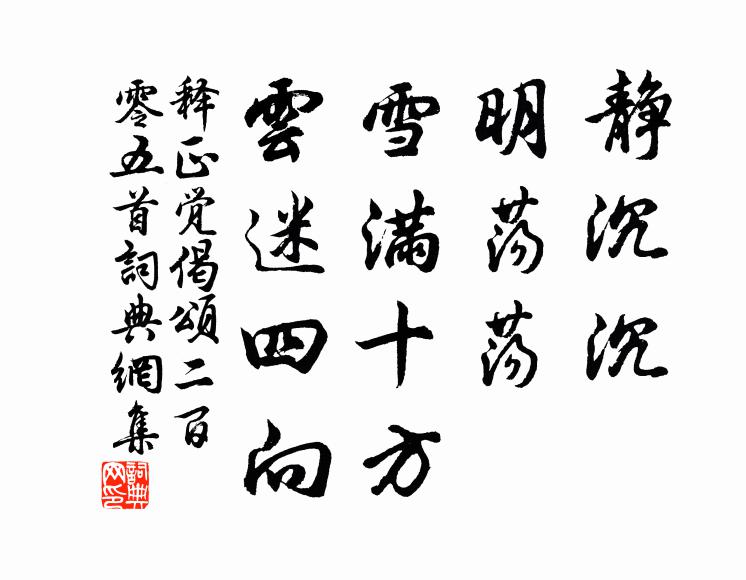 静沉沉
明荡荡
雪满十方
雲迷四向
释正觉偈頌二百
零五首詞典網集
詞典
网印